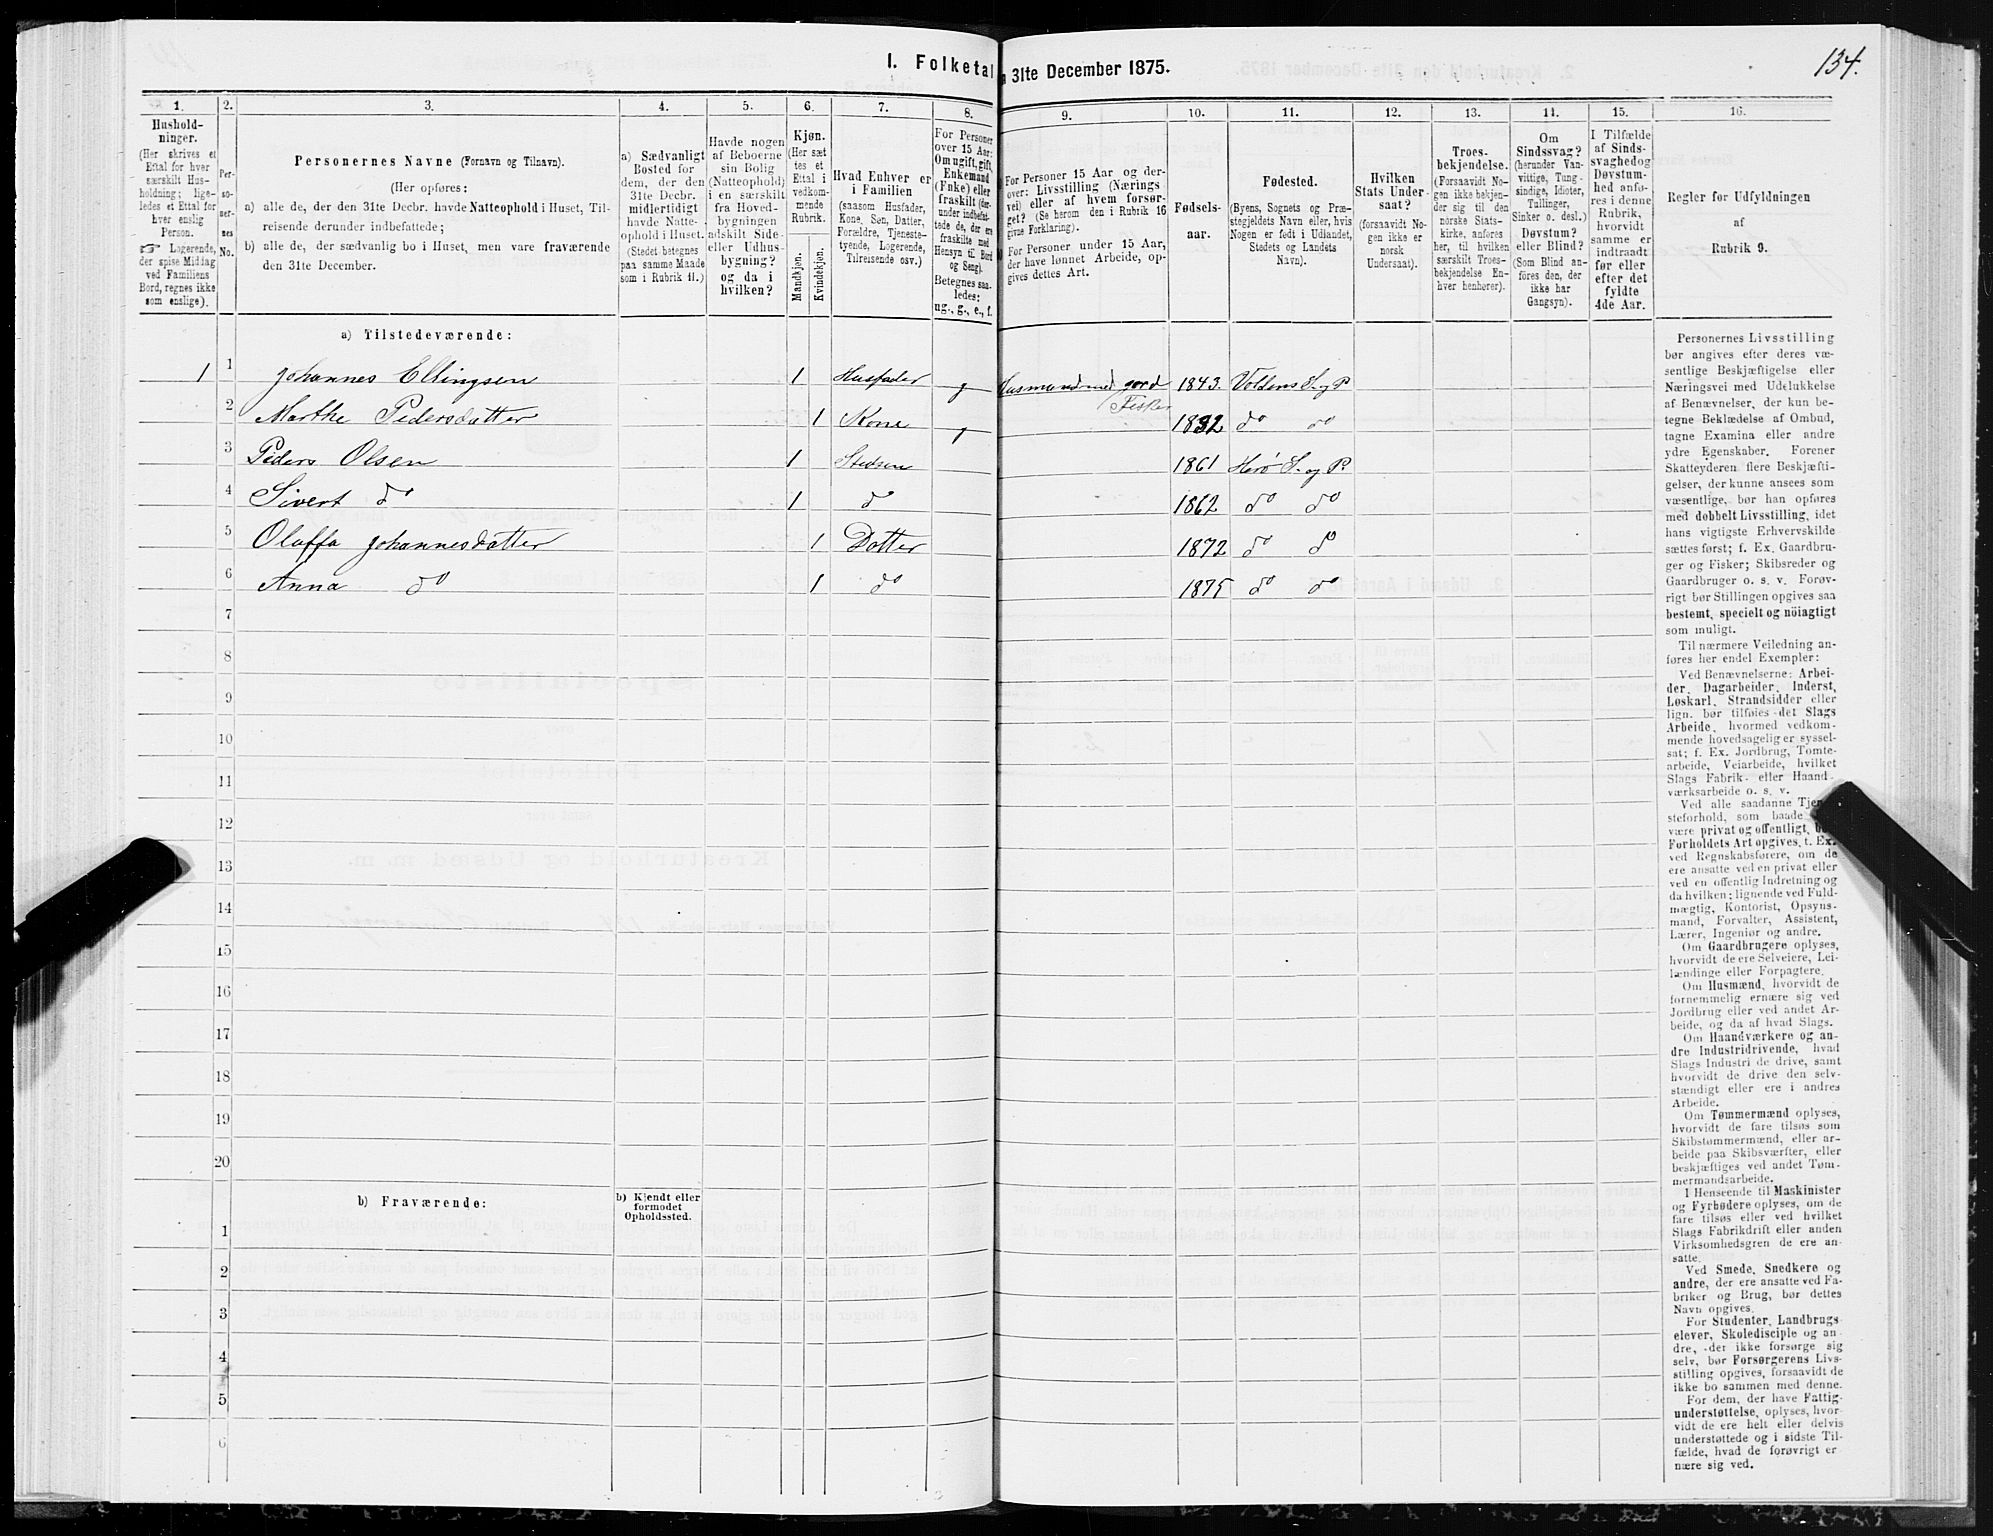 134.
I. Folketal
31te December 1875.
1. 2. 3. 4. 5. 6. 7. 8. 9. 10. 11. 12. 13. 14. 15. 16.
Hushold-
ninger.
(Her skrives et
Ettal for hver
særskilt Hus-
holdning; lige-
ledes et Ettal for
hver enslig
Person.
☞ Logerende,
der spise Middag
ved Familiens
Bord, regnes ikke
som enslige).
Per-
so-
ner-
nes
No.
Personernes Navne (Fornavn og Tilnavn).
(Her opføres:
a) alle de, der den 31te Decbr. havde Natteophold i Huset, Til-
reisende derunder indbefattede;
b) alle de, der sædvanlig bo i Huset, men vare fraværende
den 31te December.
a) Sædvanligt
Bosted for
dem, der den
31te Decbr.
midlertidigt
havde Natte-
ophold i Huset.
(Stedet betegnes
paa samme Maade
som i Rubrik 11.)
Havde nogen
af Beboerne
sin Bolig
(Natteophold)
i en særskilt
fra Hoved-
bygningen
adskilt Side-
eller Udhus-
bygning?
og da i
hvilken?
Kjøn.
(Her sæt
tes et
Ettal i
vedkom-
mende
Rubrik.
Mandkjøn.
Kvindekjøn.
Hvad Enhver er
i Familien
(saasom Husfader,
Kone, Søn, Datter,
Forældre, Tjeneste-
tyende, Logerende,
Tilreisende osv.)
For Personer
over 15 Aar:
Om ugift, gift,
Enkemand
(Enke) eller
fraskilt (der-
under indbefat-
tede de, der ere
fraskilte med
Hensyn til Bord
og Seng).
Betegnes saa-
ledes:
ug., g., e., f.
For Personer 15 Aar og der-
over: Livsstilling (Nærings
vei) eller af hvem forsør-
get? (Se herom den i Rubrik 16
givne Forklaring).
For Personer under 15 Aar,
der have lønnet Arbeide, op-
gives dettes Art.
Fødsels-
aar.
Fødested.
(Byens, Sognets og Præ-
stegjeldets Navn eller, hvis
Nogen er født i Udlandet,
Stedets og Landets
Navn).
Hvilken
Stats Under-
saat?
(forsaavidt No-
gen ikke er
norsk
Undersaat).
Troes-
bekjendelse.
(Forsaavidt No-
gen ikke bekjen-
der sig til den
norske Stats-
kirke, anføres
her, til hvilken
særskilt Troes-
bekjendelse En-
hver henhører).
Om
Sindssvag?
(herunder Van-
vittige, Tung-
sindige, Idioter,
Tullinger,
Sinker o. desl.)
Døvstum?
eller Blind?
(Som Blind an-
føres den, der
ikke har
Gangsyn).
I Tilfælde
af Sinds-
svaghedog
Døvstum-
hed anfø-
res i denne
Rubrik,
hvorvidt
samme er
indtraadt
før eller
efter det
fyldte
4de Aar.
Regler for Udfyldningen
af
Rubrik 9.
a) Tilstedeværende:
1 1 Johannes Ellingsen 1 Husfader g Husmand med Jord 1843. Voldens S. og P.
Fisker
2 Marthe Pedersdatter 1 Kone g 1832 do do
3 Peders Olsen 1 Stedsøn 1861 Herø S. og P.
4 Sivert do 1 do 1862 do do
5 Oluffa Johannesdatter 1 Datter 1872 do do
6 Anna do 1 do 1875 do do
7
8
9
10
11
12
13
14
15
16
17
18
19
20
b) Fraværende:
b) Kjendt eller
formodet
Opholdssted.
1
2
3
4
5
6
Personernes Livsstilling
bør angives efter deres væ-
sentlige Beskjæftigelse eller
Næringsvei med Udelukkelse
af Benævnelser, der kun be-
tegne Beklædelse af Ombud,
tagne Examina eller andre
ydre Egenskaber. Forener
Skatteyderen flere Beskjæfti-
gelser, der kunne ansees som
væsentlige, bør han opføres
med dobbelt Livsstilling, idet
hans vigtigste Erhvervskilde
sættes først; f. Ex. Gaardbru-
ger og Fisker; Skibsreder og
Gaardbruger o. s. v. Forøv-
rigt bør Stillingen opgives saa
bestemt, specielt og nöiagtigt
som muligt.
Til nærmere Veiledning an-
føres her endel Exempler:
Ved Benævnelserne: Arbei-
der, Dagarbeider, Inderst,
Løskarl, Strandsidder eller
lign. bør tilføies det Slags
Arbeide, hvormed vedkom-
mende hovedsagelig er syssel-
sat; f. Ex. Jordbrug, Tomte-
arbeide, Veiarbeide, hvilket
Slags Fabrik- eller Haand-
værksarbeide o. s. v.
Ved alle saadanne Tjene-
steforhold, som baade
være privat og offentligt, bør
Forholdets Art opgives, t. Ex.
ved Regnskabsførere, om de
ere ansatte ved en privat eller
ved en offentlig Indretning og
da hvilken; lignende ved Fuld-
mægtig, Kontorist, Opsyns-
mand, Forvalter, Assistent,
Lærer, Ingeniør og andre.
Om Gaardbrugere oplyses,
hvorvidt de ere Selveiere, Lei-
lændinge eller Forpagtere.
Om Husmænd, hvorvidt de
fornemmelig ernære sig ved
Jordbrug eller ved andet Ar-
beide, og da af hvad Slags.
Om Haandværkere og an-
dre Industridrivende, hvad
Slags Industri de drive, samt
hvorvidt de drive den selv-
stændigt eller ere i andres
Arbeide.
Om Tømmermænd oplyses,
hvorvidt de fare tilsøs som
Skibstømmermænd, eller ar-
beide paa Skibsværfter, eller
beskjæftiges ved andet Tøm-
mermandsarbeide.
I Henseende til Maskinister
og Fyrbødere oplyses, om de
fare tilsøs eller ved hvilket
Slags Fabrikdrift eller anden
Virksomhedsgren de ere an-
satte.
Ved Smede, Snedkere og
andre, der ere ansatte ved Fa-
briker og Brug, bør dettes
Navn opgives.
For Studenter, Landbrugs-
elever, Skoledisciple og an-
dre, der ikke forsørge sig
selv, bør Forsørgerens Livs-
stilling opgives, forsaavidt de
ikke bo sammen med denne.
For dem, der have Fattig-
understøttelse, oplyses, hvor-
vidt de ere helt eller delvis
understøttede og i sidste Til-
fælde, hvad de forøvrigt er-
nære sig ved.